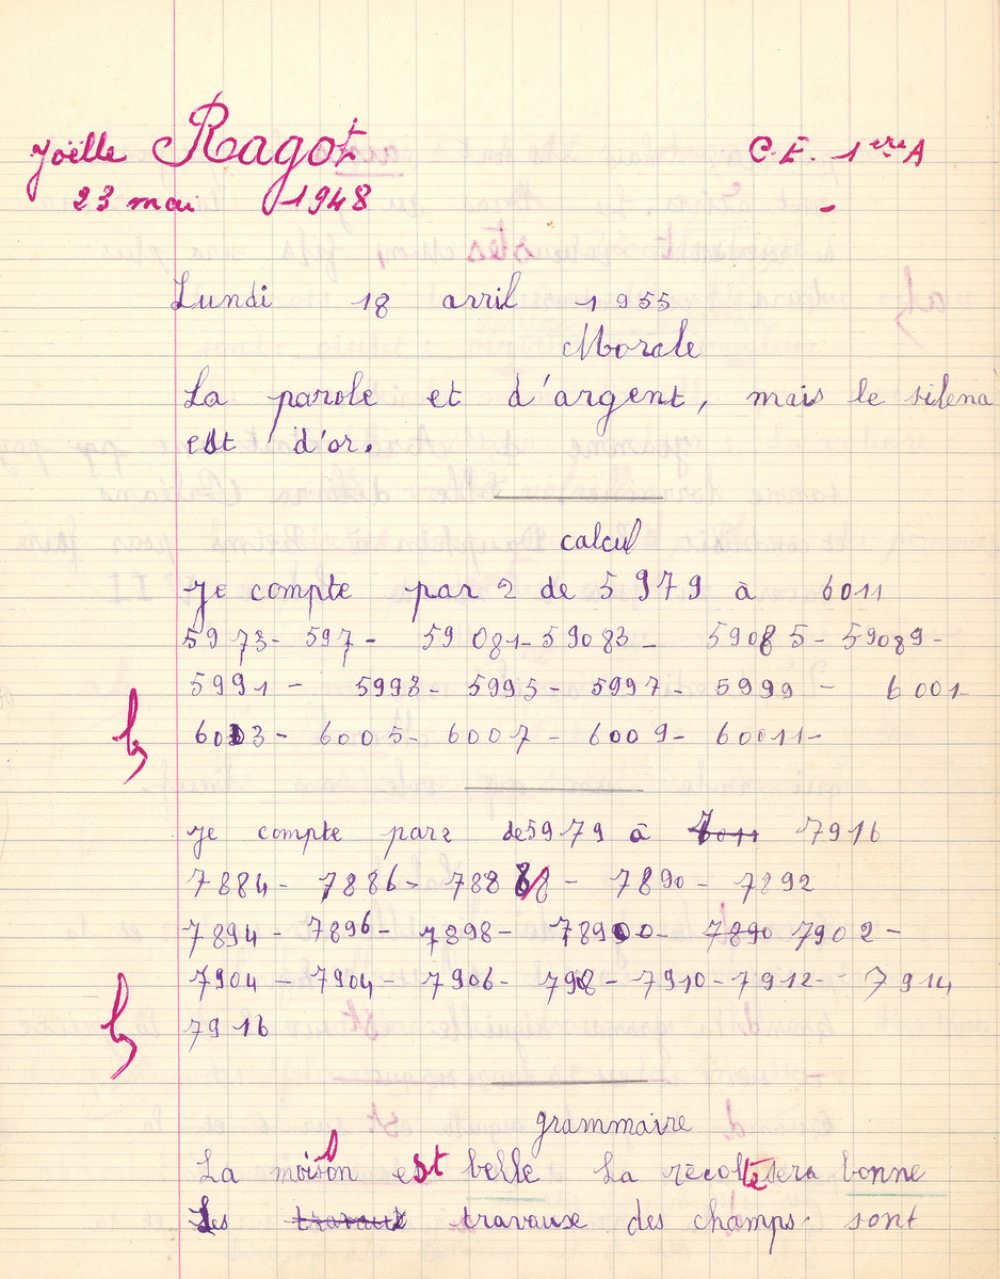 Joëlle Ragot C.E. 1ère A
23 mai 1948
Lundi 18 avril 1955
Morale
La parole et d'argent, mais le silence
est d'or.
calcul
je compte par 2 de 5979 à 6011
5973- 597- 59081- 59083- 59085- 59089-
5991 - 5993- 5995- 5997- 5999 - 6001-
6003- 6005- 6007- 6009- 60011-
je compte par 2 de 5979 à 7011 7916
7884- 7886- 7888 8 - 7890- 7892
7894- 7896- 7898- 78900- 7890 7902-
7904- 7904- 7906- 798- 7910- 7912- 7914
7916
grammaire
La moison est belle La récolte sera bonne
Les travaux travause des champs sont